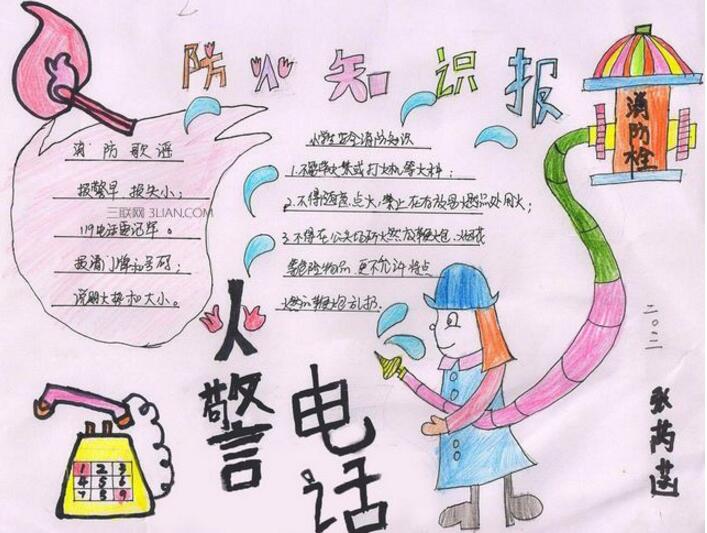 防火知识报
消防歌谣
报警早 损失小；
119电话要记牢。
报清门牌和号码；
说明火势和大小。
三联网 3LIAN.COM
小学生安全消防知识
1.不带火柴或打火机等火种；
2.不得随意点火，禁止在易燃易爆物品处用火；
3.不得在公共场所燃放鞭炮，
等危险物品 更不允许将点
燃的鞭炮乱扔.
火警电话
消防栓
1 2 3
4 5 6
7 8 9
二〇一一